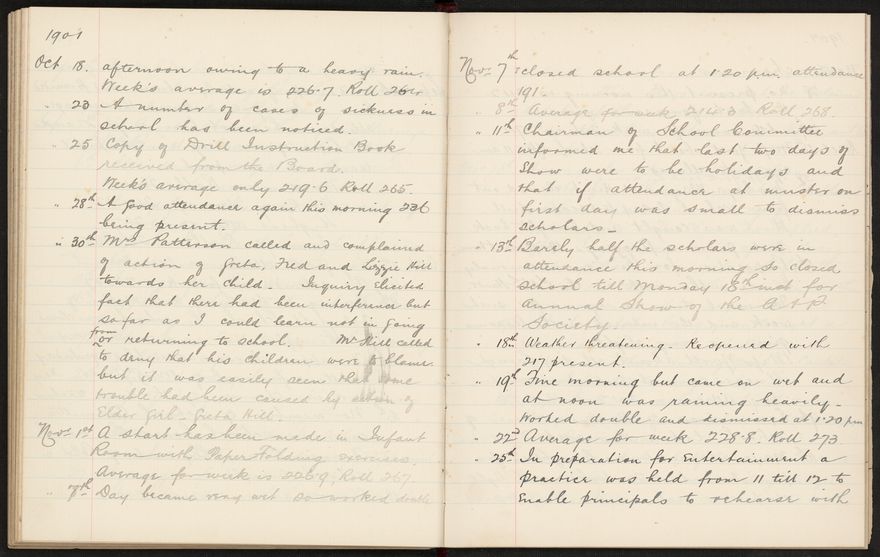 1907
Oct 18. afternoon owing to a heavy rain.
Week's average is 226.7. Roll
" 23 A number of cases of sickness in
school has been noticed.
" 25 Copy of Drill Instruction Book
received from the Board.
Week's average only 219.6 Roll 265.
" 28th A good attendance again this morning 236
being present.
" 30th Mrs Patterson called and complained
of action of Greta, Fred and Lizzie Hill
towards her child. Inquiry elicited
fact that there had been interference but
so far as I could learn not in going
from
or returning to school. Mr Hill called
to deny that his children were to blame
but it was easily seen that some
trouble had been caused by action of
Elder girl - Greta Hill.
Novr 1st A start has been made in Infant
Room with Paper Folding exercises.
Average for week is 226.9, Roll 267.
" 7th Day became very wet so worked double
Novr 7th closed school at 1.20 p.m. attendance
191.
" 8th Average for week 214.3 Roll 268.
" 11th Chairman of School Committee
informed me that last two days of
Show were to be holidays and
that if attendance at muster on
first day was small to dismiss
scholars -
" 13th Barely half the scholars were in
attendance this morning so closed
school till Monday 18th inst for
Annual Show of the A & P
Society.
" 18th Weather threatening. Reopened with
217 present.
" 19th Fine morning but came on wet and
at noon was raining heavily -
worked double and dismissed at 1.20 pm
" 22nd Average for week 228.8. Roll 273
" 25th In preparation for Entertainment a
practice was held from 11 till 12 to
enable principals to rehearse with